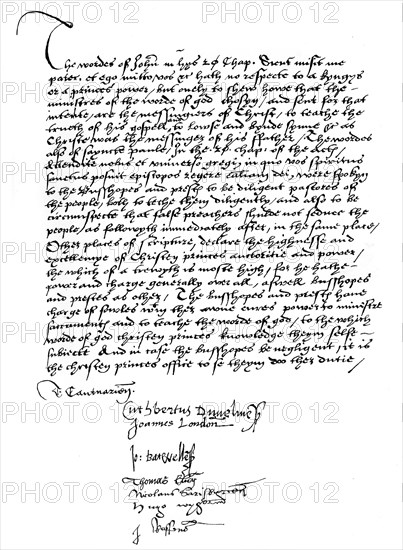 The wordes of John in hys 20 Chap. Sicut misit me
pater, et ego mitto vos &c hath no respecte to a kynges
or a princes power, but onely to shew howe that the
ministres of the worde of god chosyn, and sent for that
intente, are the messengiers of Christ, to teache the
truth of his gospell, to lowse and bynde synne &c as
Christe was the messinger of his ffather / The wordes
also of saynte paule, in the 20 chap: of the Acts,
Attendite vobis et universo gregi, in quo vos spiritus
sanctus posuit episcopos regere ecclesiam dei, were spokyn
to the Busshopes and prests to be diligent pastores of
the people, both to teche them diligently, and also to be
circumspecte that false preachers shulde not seduce the
people, as followyth immediately after, in the same place /
Other places of scripture, declare the highnesse and
excellencye of Christen princes auctoritie and power,
the which of a trewyth is moste high, for he hathe
power and charge generally over all, aswell busshopes
and prestes as other / The busshopes and prests have
charge of sowles wtin their awne cures, power to ministre
sacraments and to teache the worde of god, to the which
worde of god christen princes knowledge theym self
subiect & and in case the busshopes be negligent, it is
the christen princes office to se theym doo ther dutie /
T. Cantuarien
Cuthbertus Dunelmen
Joannes London
Jo: Bathwellen
Thomas Elien
Nicolaus Sarisburien
Hugo Wygorn
J Roffens
PHOTO 12